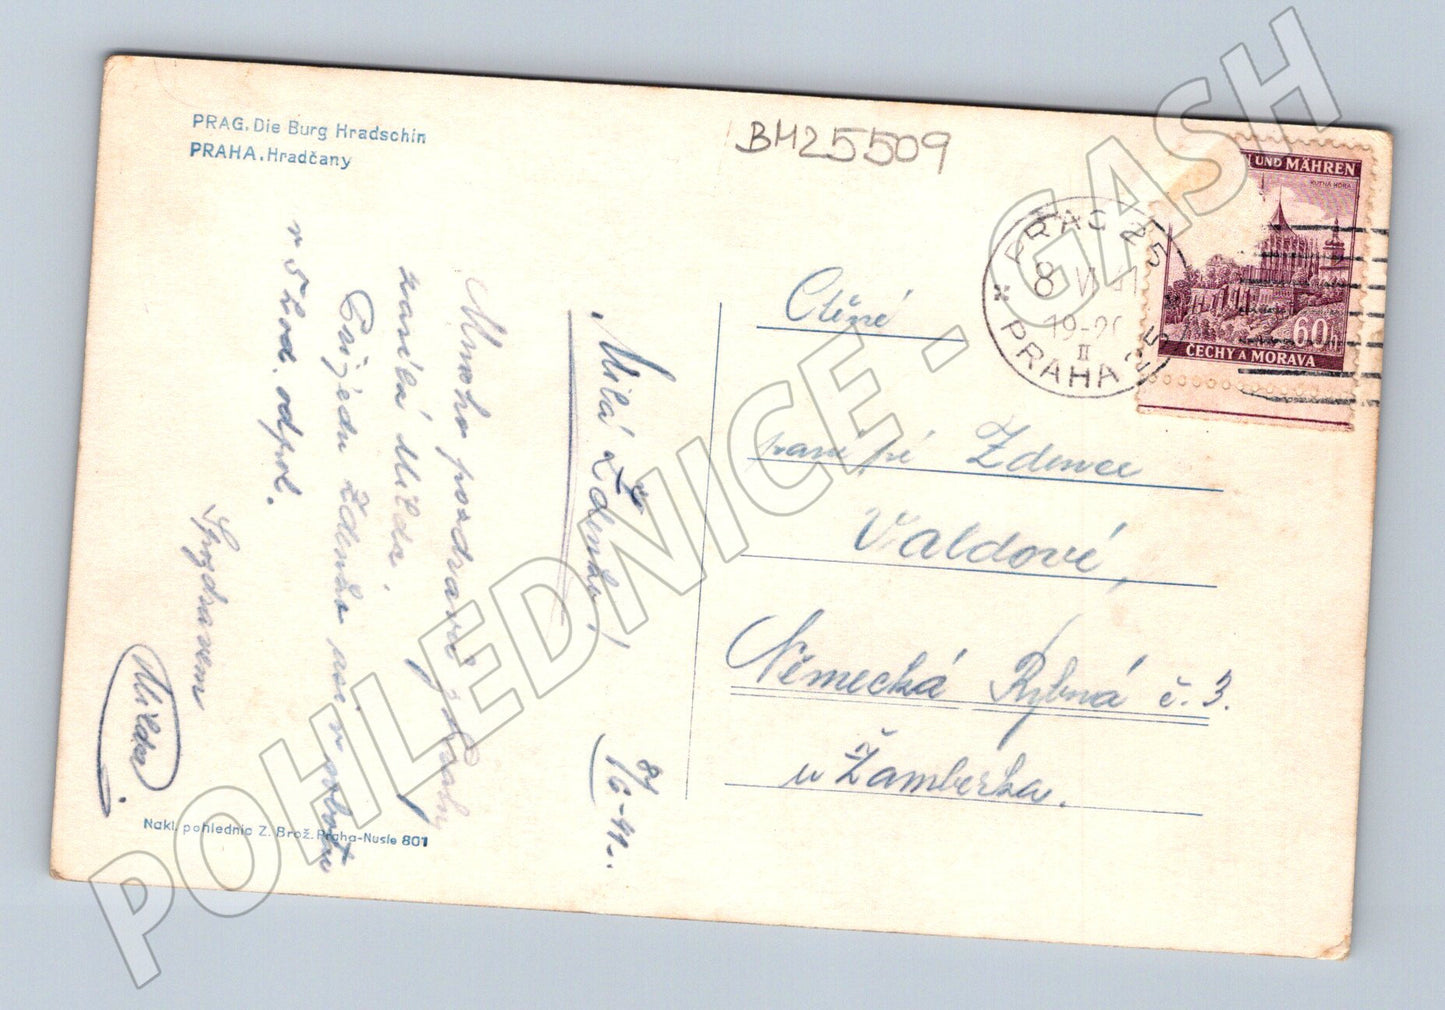 PRAG. Die Burg Hradschin
PRAHA. Hradčany
BM25509
8/6-41.
Milá Zdenko!
Mnoho pozdravů z Prahy
Milda
Přijedu Zdenko
v 5 hod. odpol.
S pozdravem
Milda
Nakl. pohlednic Z. Brož. Praha-Nusle 801
PRAG 25
8 VI 41
19-20
II
PRAHA 25
UND MÄHREN
KUTNÁ HORA
60
ČECHY A MORAVA
Ctěné
paní Zdence
Valdové,
Německá Rybná č. 3.
u Žamberka.
POHLEDNICE - GASH